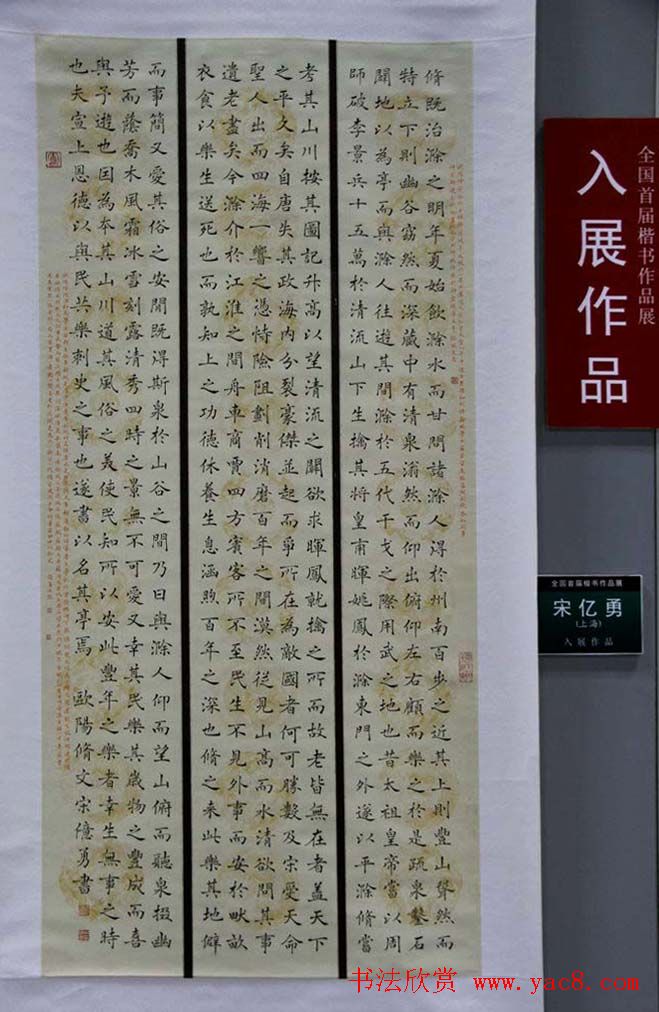 脩既治滁之明年夏始飲滁水而甘問諸滁人得於州南百步之近其上則豐山聳然而
特立下則幽谷窈然而深藏中有清泉滃然而仰出俯仰左右顧而樂之於是疏泉鑿石
闢地以為亭而與滁人往遊其間滁於五代干戈之際用武之地也昔太祖皇帝嘗以周
師破李景兵十五萬於清流山下生擒其將皇甫暉姚鳳於滁東門之外遂以平滁脩嘗
考其山川按其圖記升高以望清流之關欲求暉鳳就擒之所而故老皆無在者蓋天下
之平久矣自唐失其政海內分裂豪傑並起而爭所在為敵國者何可勝數及宋受天命
聖人出而四海一嚮之憑恃險阻剗削消磨百年之間漠然徒見山高而水清欲問其事
遺老盡矣今滁介於江淮之間舟車商賈四方賓客所不至民生不見外事而安於畎畝
衣食以樂生送死也而孰知上之功德休養生息涵煦百年之深也脩之來此樂其地僻
而事簡又愛其俗之安閒既得斯泉於山谷之間乃日與滁人仰而望山俯而聽泉掇幽
芳而蔭喬木風霜冰雪刻露清秀四時之景無不可愛又幸其民樂其歲物之豐成而喜
與予遊也因為本其山川道其風俗之美使民知所以安此豐年之樂者幸生無事之時
也夫宣上恩德以與民共樂刺史之事也遂書以名其亭焉 歐陽脩文宋億勇書
全国首届楷书作品展
入展作品
全国首届楷书作品展
宋亿勇
(上海)
入展作品
书法欣赏 www.yac8.com